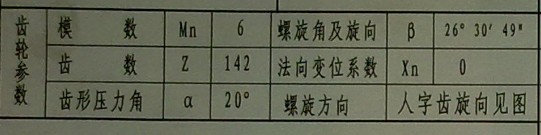 齿轮参数
模 数 Mn 6 螺旋角及旋向 β 26° 30′ 49″
齿 数 Z 142 法向变位系数 Xn 0
齿形压力角 α 20° 螺旋方向 人字齿旋向见图